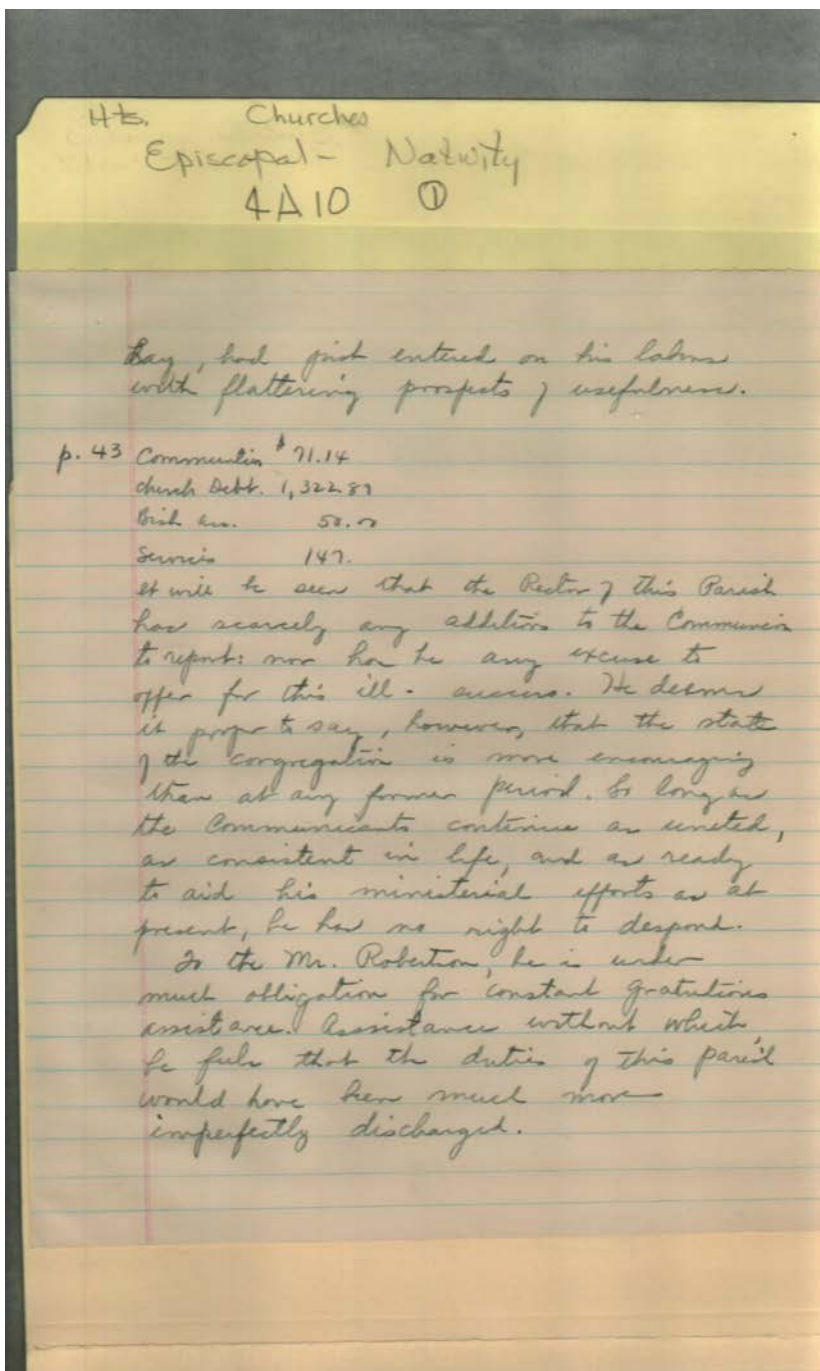 Hts. Churches
Episcopal - Nativity
4A10 ①
Lay, had just entered on his labors
with flattering prospects of usefulness.
p. 43 Communion $71.14
church Debt. 1,322.89
Bish ass. 50.00
Services 147.
It will be seen that the Rector of this Parish
has scarcely any additions to the Communion
to report: nor has he any excuse to
offer for this ill-success. He deems
it proper to say, however, that the state
of the congregation is more encouraging
than at any former period. So long as
the Communicants continue as united,
as consistent in life, and as ready
to aid his ministerial efforts as at
present, he has no right to despond.
To the Mr. Robertson, he is under
much obligation for constant gratuitous
assistance. Assistance without which
he feels that the duties of this parish
would have been much more
imperfectly discharged.